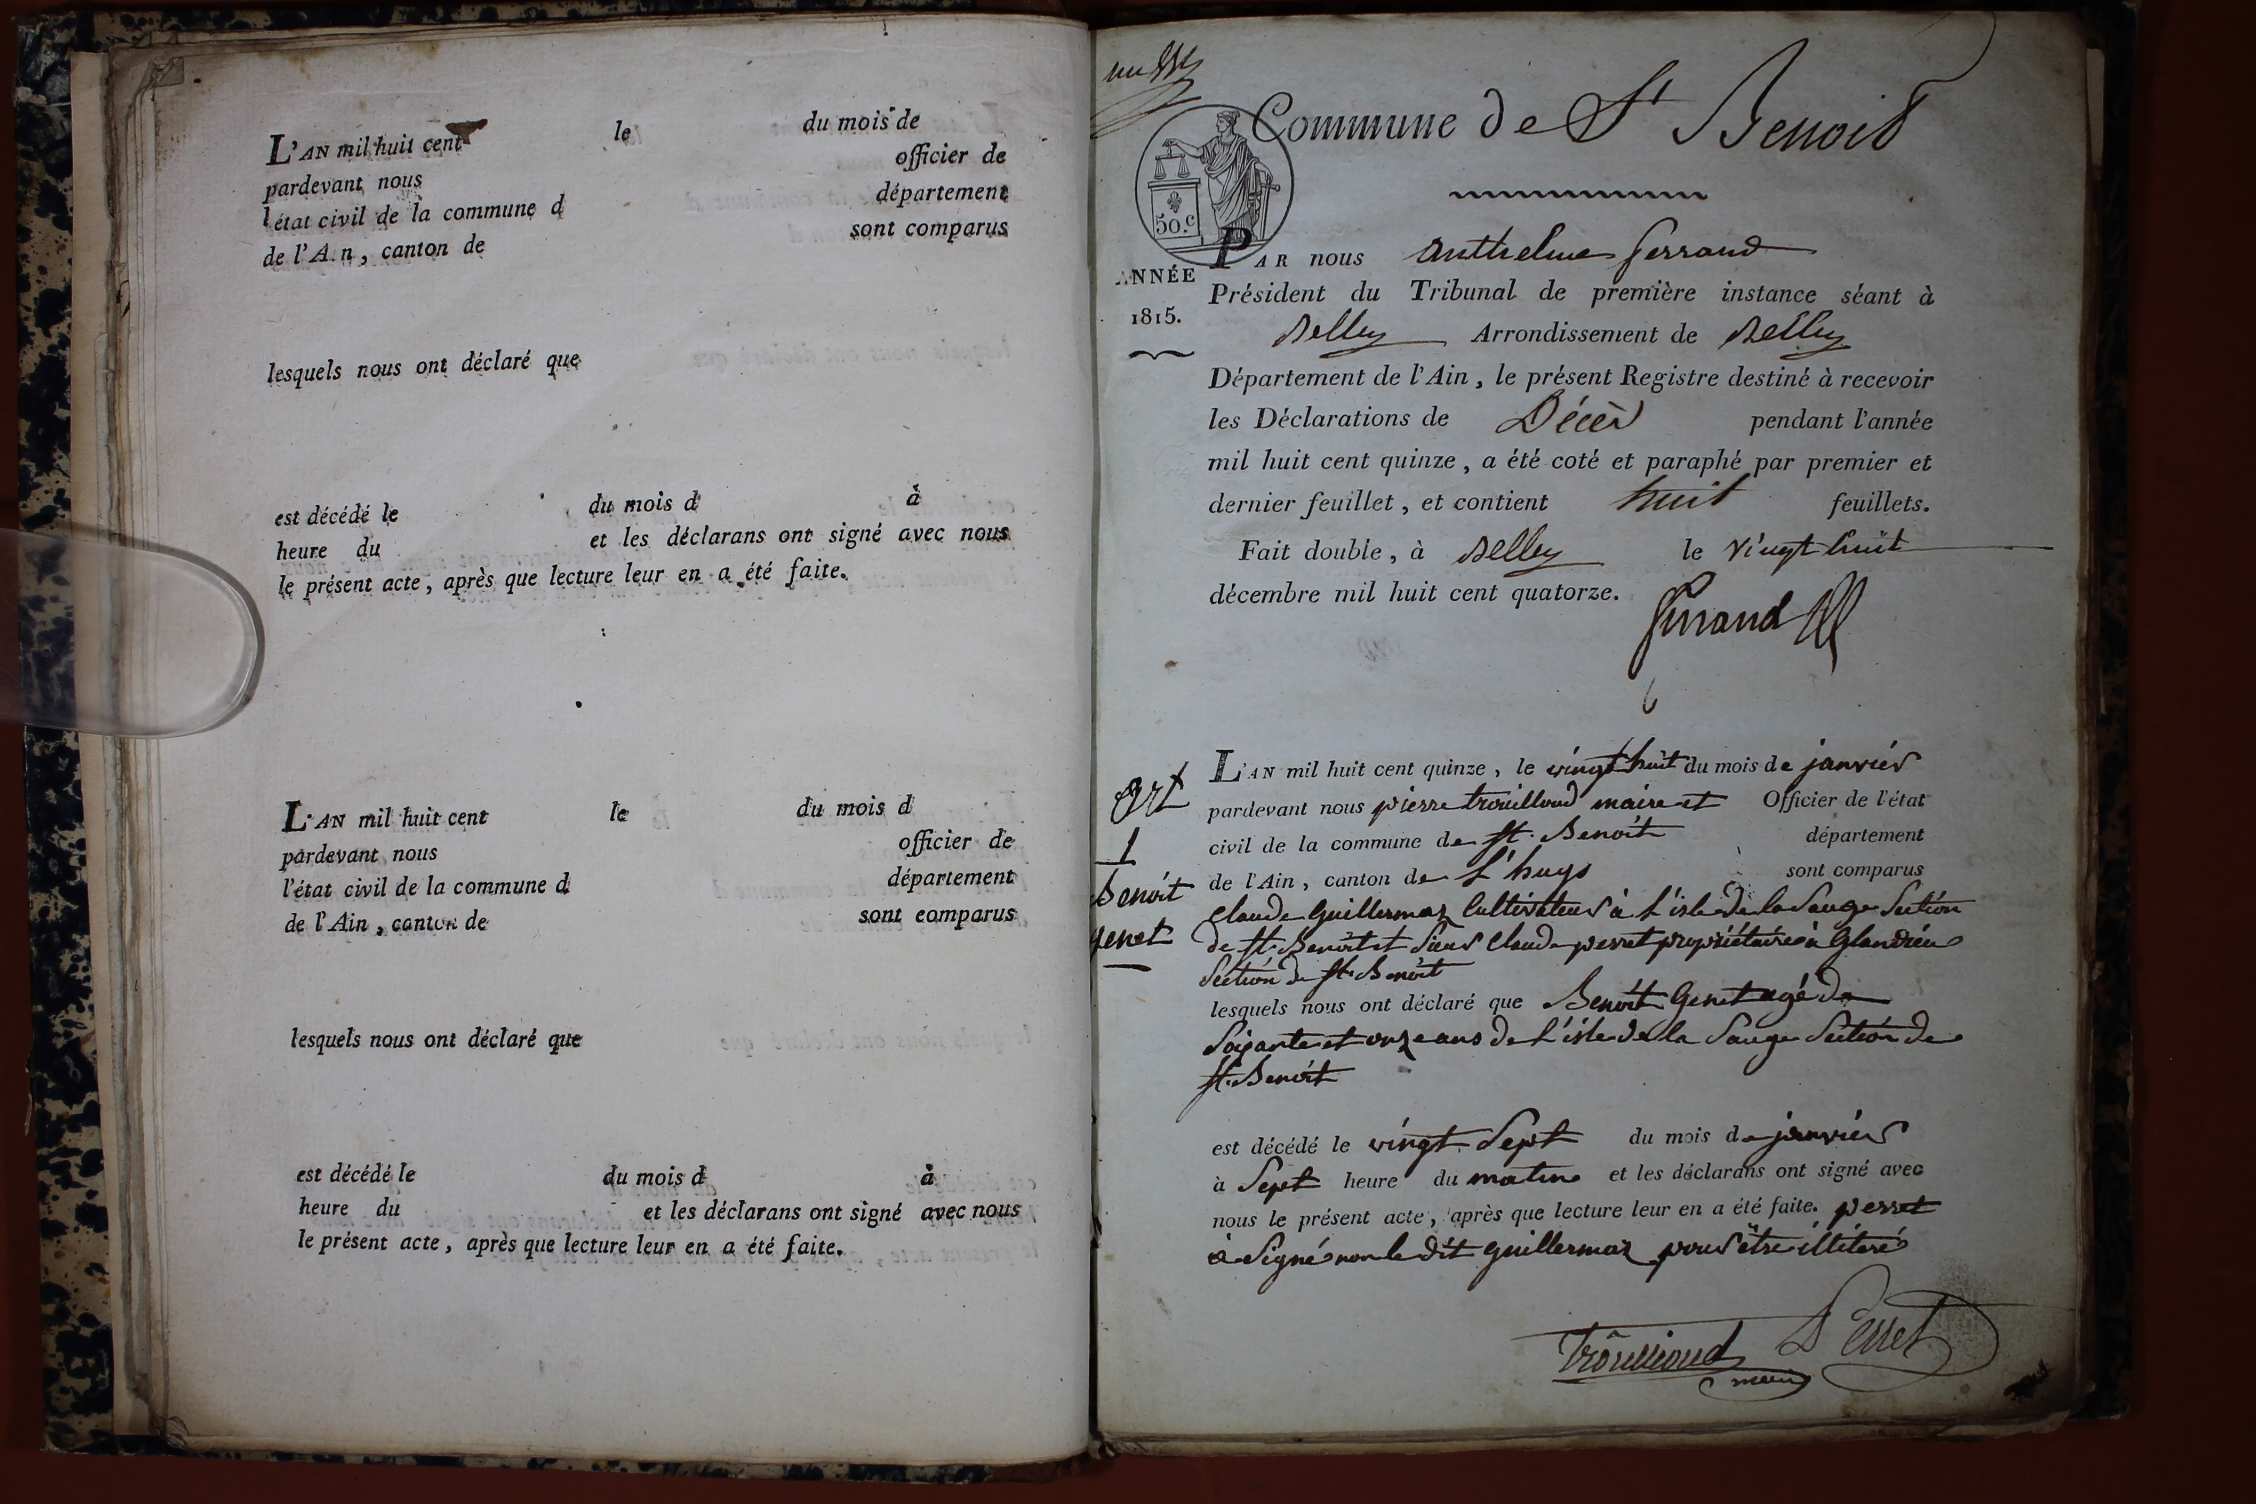 L'AN mil huit cent le du mois de
pardevant nous officier de
l'état civil de la commune d département
de l'A n, canton de sont comparus
lesquels nous ont déclaré que
est décédé le du mois d à
heure du et les déclarans ont signé avec nous
le présent acte, après que lecture leur en a été faite.
L'AN mil huit cent le du mois d
pardevant nous officier de
l'état civil de la commune d département
de l'Ain, canton de sont comparus
lesquels nous ont déclaré que
est décédé le du mois d à
heure du et les déclarans ont signé avec nous
le présent acte, après que lecture leur en a été faite.
Commune de St Benoit
50.c
ANNÉE
1815.
PAR nous Anthelme Ferrand
Président du Tribunal de première instance séant à
Belley Arrondissement de Belley
Département de l'Ain, le présent Registre destiné à recevoir
les Déclarations de Décès pendant l'année
mil huit cent quinze, a été coté et paraphé par premier et
dernier feuillet, et contient huit feuillets.
Fait double, à Belley le vingt huit
décembre mil huit cent quatorze.
Ferrand
Art
1
Benoit
genet
L'AN mil huit cent quinze, le vingt huit du mois de janvier
pardevant nous pierre trouilloud maire et Officier de l'état
civil de la commune de St. Benoit département
de l'Ain, canton de L'huys sont comparus
Claude Guillermaz Cultivateur à L'isle de la Sauge Section
de St. Benoit et Sieur Claude perret propriétaire à Glandieu
Section de St. Benoit
lesquels nous ont déclaré que Benoit Genet agé de
Soixante et onze ans de L'isle de la Sauge Section de
St. Benoit
est décédé le vingt Sept du mois de janvier
à Sept heure du matin et les déclarans ont signé avec
nous le présent acte, après que lecture leur en a été faite. perret
à Signé non le dit guillermaz pour être illiteré
Trouilloud Perret
maire